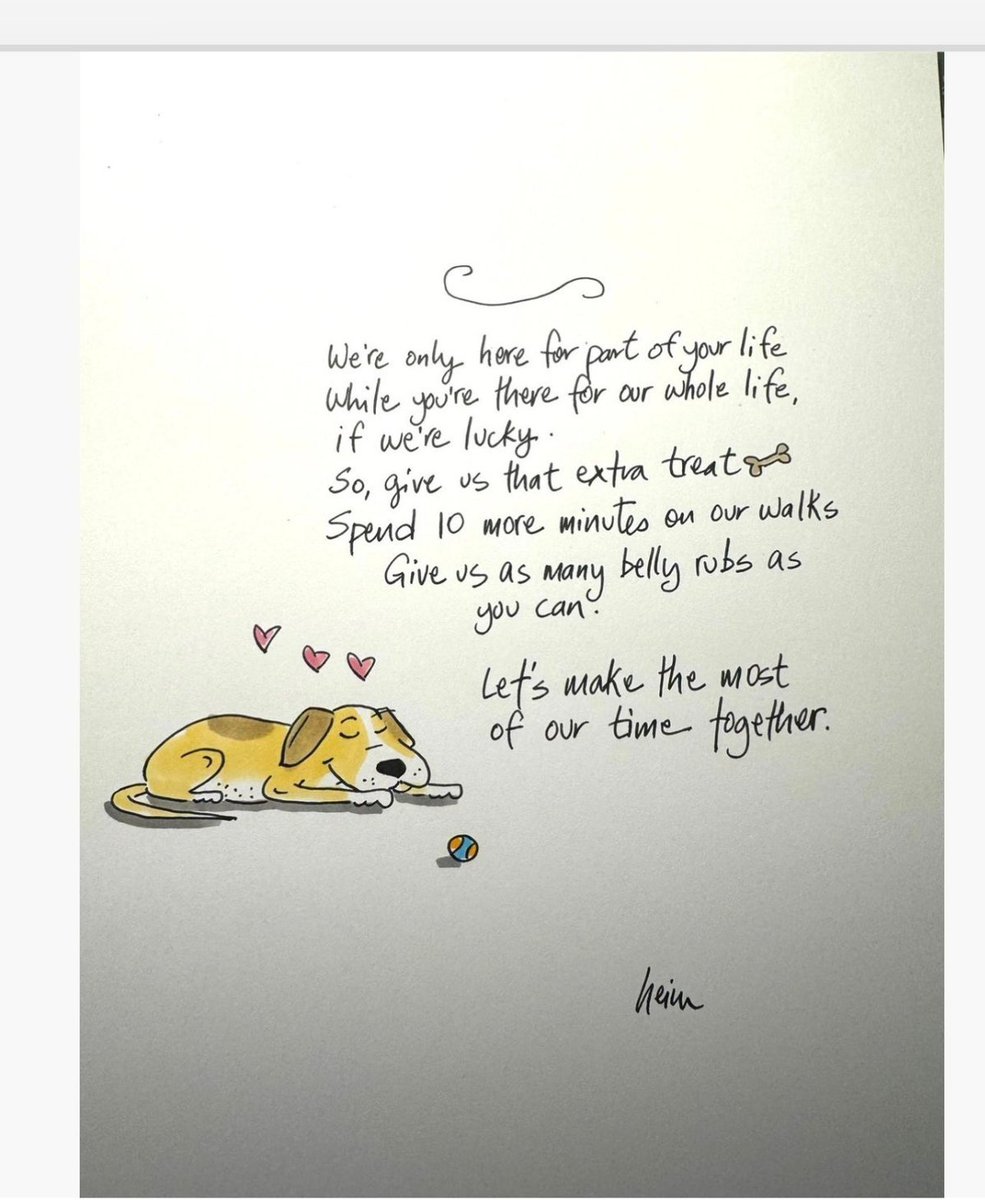 We're only here for part of your life
While you're there for our whole life,
if we're lucky.
So, give us that extra treat
Spend 10 more minutes on our walks
Give us as many belly rubs as
you can.
Let's make the most
of our time together.
heim